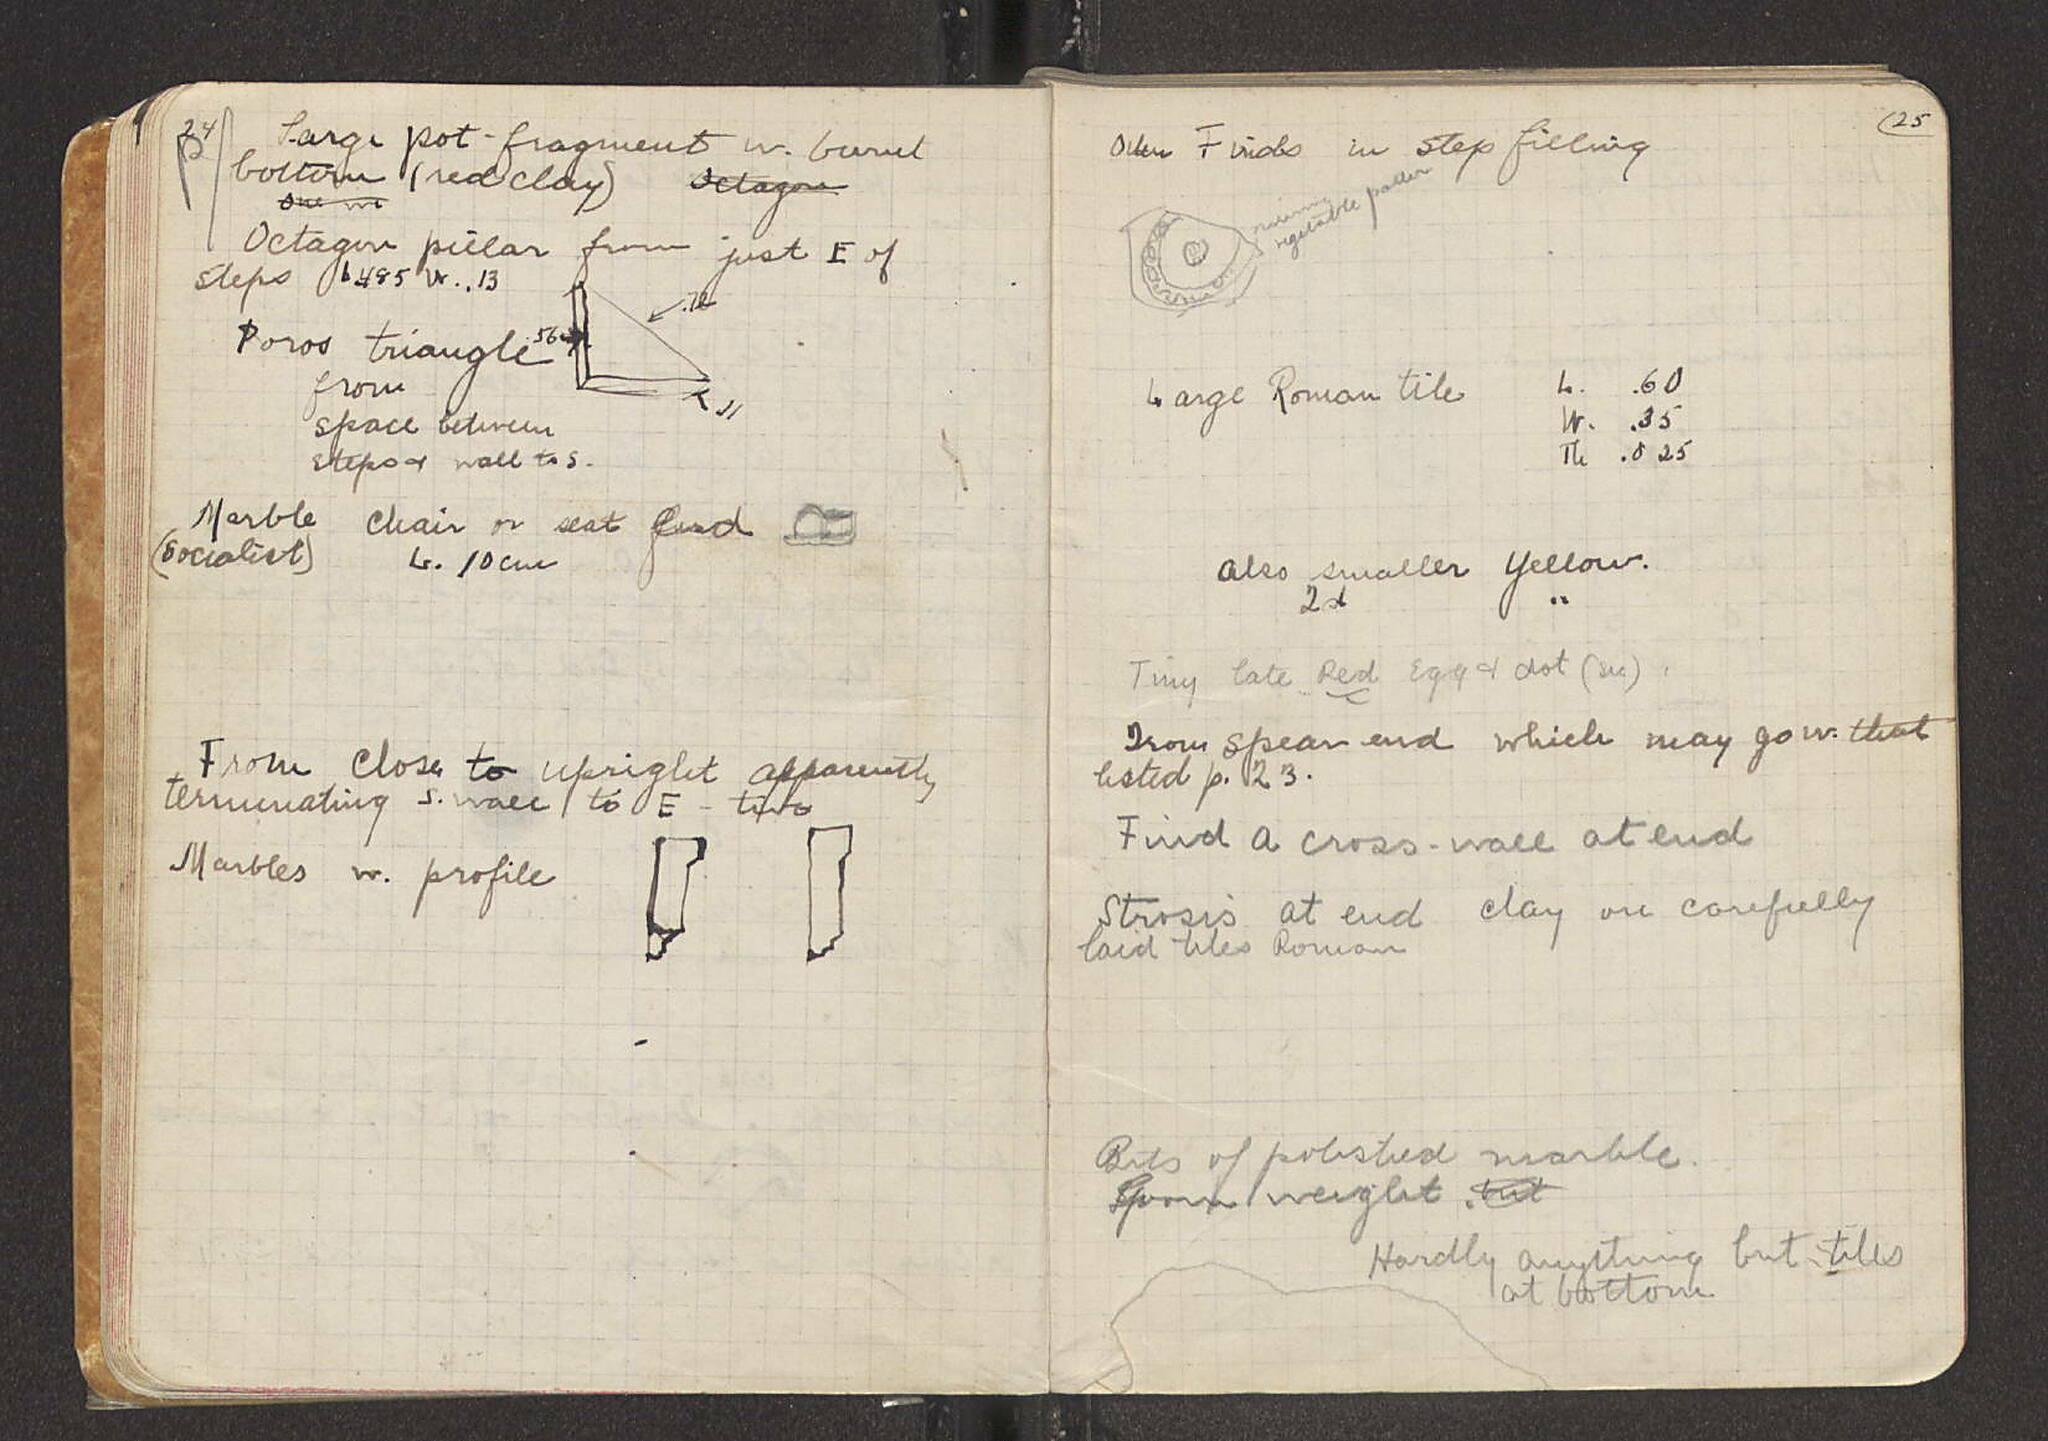 24
Large pot-fragment w. burnt
bottom (red clay) Octagon
One w
Octagon pillar from just E of
steps L 485 W. .13
Poros triangle .56
from
space between
steps & wall to S.
Marble chair or seat
(Socialist) L. 10 cm
From close to upright apparently
terminating S. wall to E - two
Marbles w. profile
25
Finds in step filling
vegetable pattern
Large Roman tile L. .60
W. .35
Th .025
Also smaller Yellow.
2d "
Tiny late Red Egg & dot (sic)
Iron spear end which may go w. that
listed p. 23.
Find a cross-wall at end
Strosis at end clay on carefully
laid tiles Roman
Bits of polished marble.
weight. but
Hardly anything but tiles
at bottom